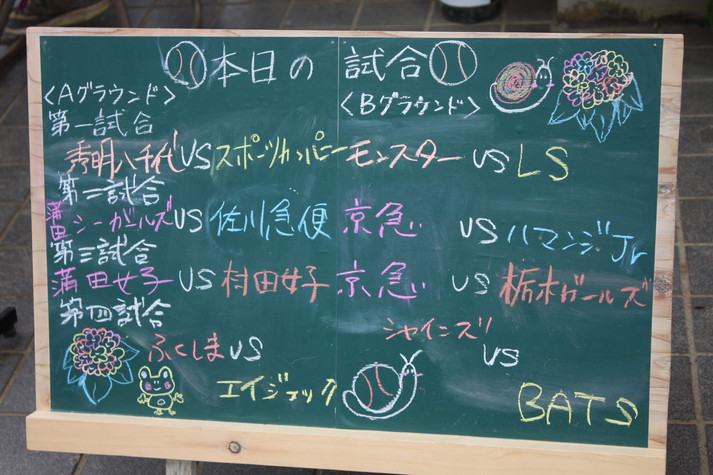 本日の 試合
〈Aグラウンド〉 〈Bグラウンド〉
第一試合
秀明八千代 VS スポーツカンパニー モンスター VS LS
第二試合
蒲田シーガールズ VS 佐川急便 京急 VS ハマンジJr
第三試合
蒲田女子 VS 村田女子 京急 VS 栃木ガールズ
第四試合
ふくしま VS エイジェック シャイニズ VS BATS